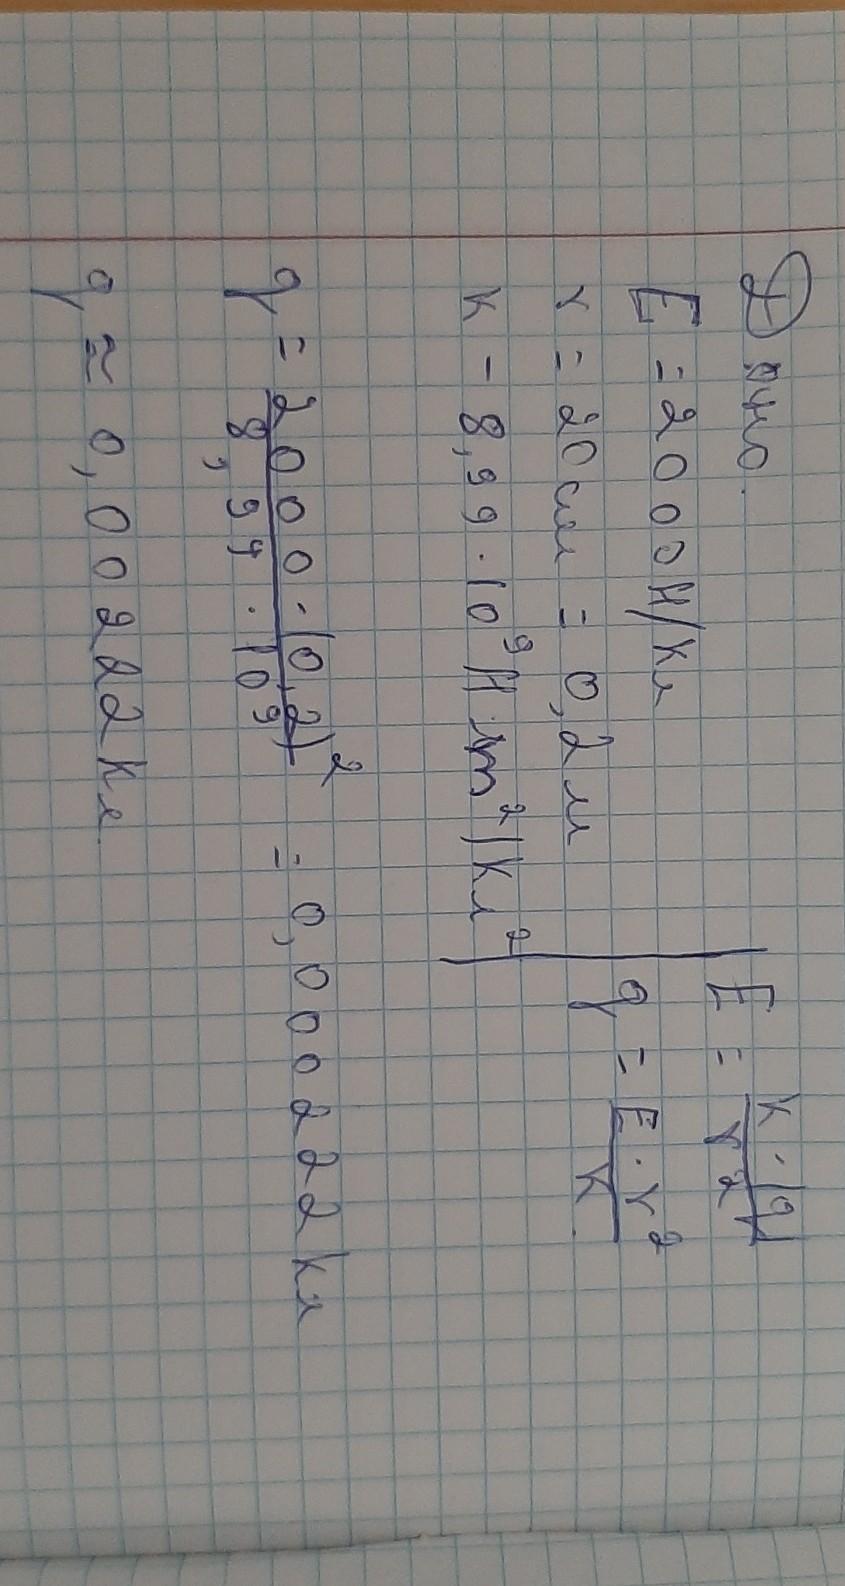 Дано
E = 2000Н/Кл
r = 20см = 0,2м
k - 8,99 · 10⁹ Н · m²/Кл²
E = k · |q| / r²
q = E · r² / k
q = 2000 · (0,2)² / 8,99 · 10⁹ = 0,000222Кл
q ≈ 0,00222Кл